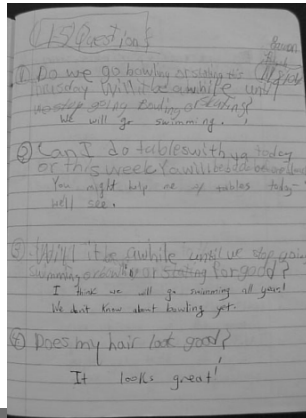 15 Questions
① Do we go bowling or skating this
Thursday Will it be awhile until
we stop going bowling or skating?
We will go swimming.
② Can I do tables with ya today
or this week You will
You might help me w/ tables today
We'll see.
③ Will it be awhile until we stop going
swimming or bowling or skating for good?
I think we will go swimming all year!
We don't know about bowling yet.
④ Does my hair look good?
It looks great!